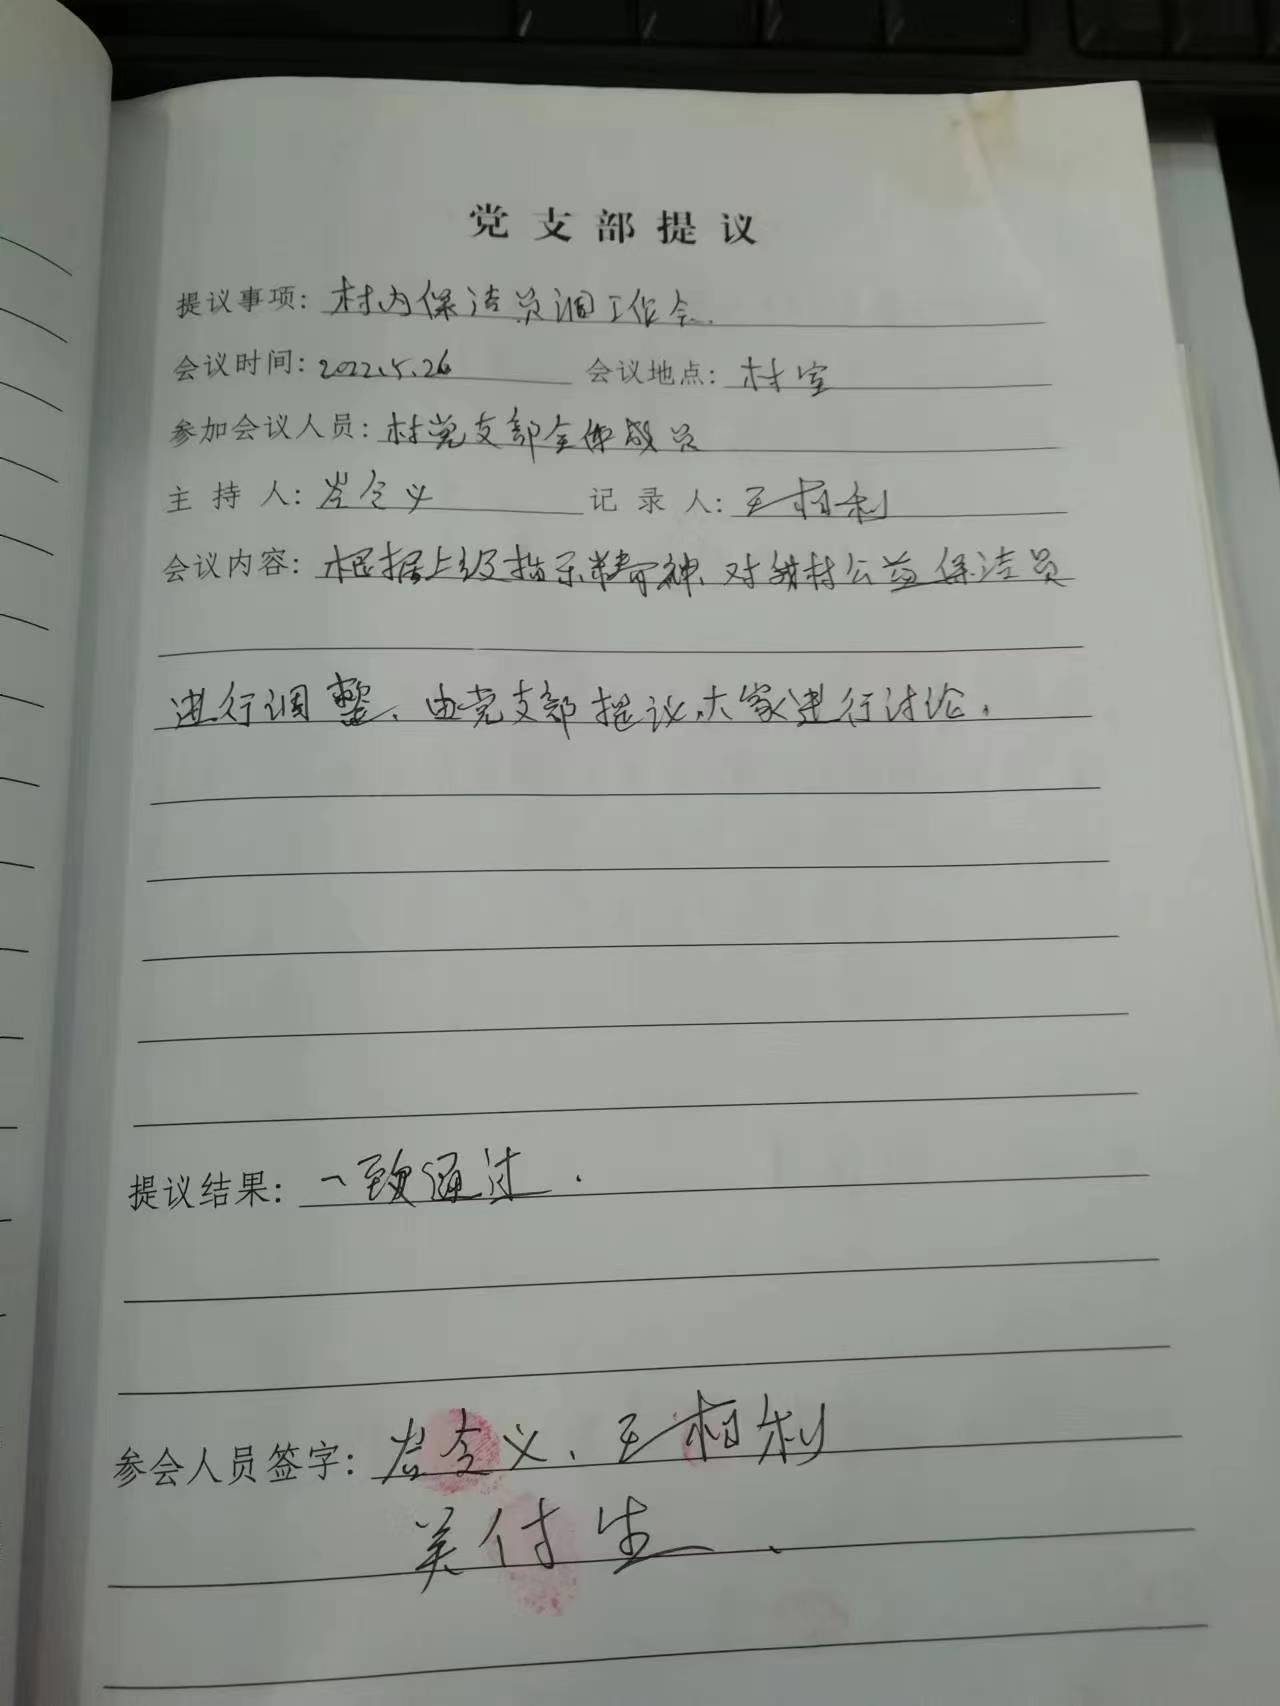 党支部提议
提议事项：村内保洁员调工作会.
会议时间：2022.5.26 会议地点：村室
参加会议人员：村党支部全体成员
主持人：岩令义 记录人：王相利
会议内容：根据上级指示精神、对我村公益保洁员
进行调整、由党支部提议，大家进行讨论.
提议结果：一致通过.
参会人员签字：岩令义、王相利
关付生、